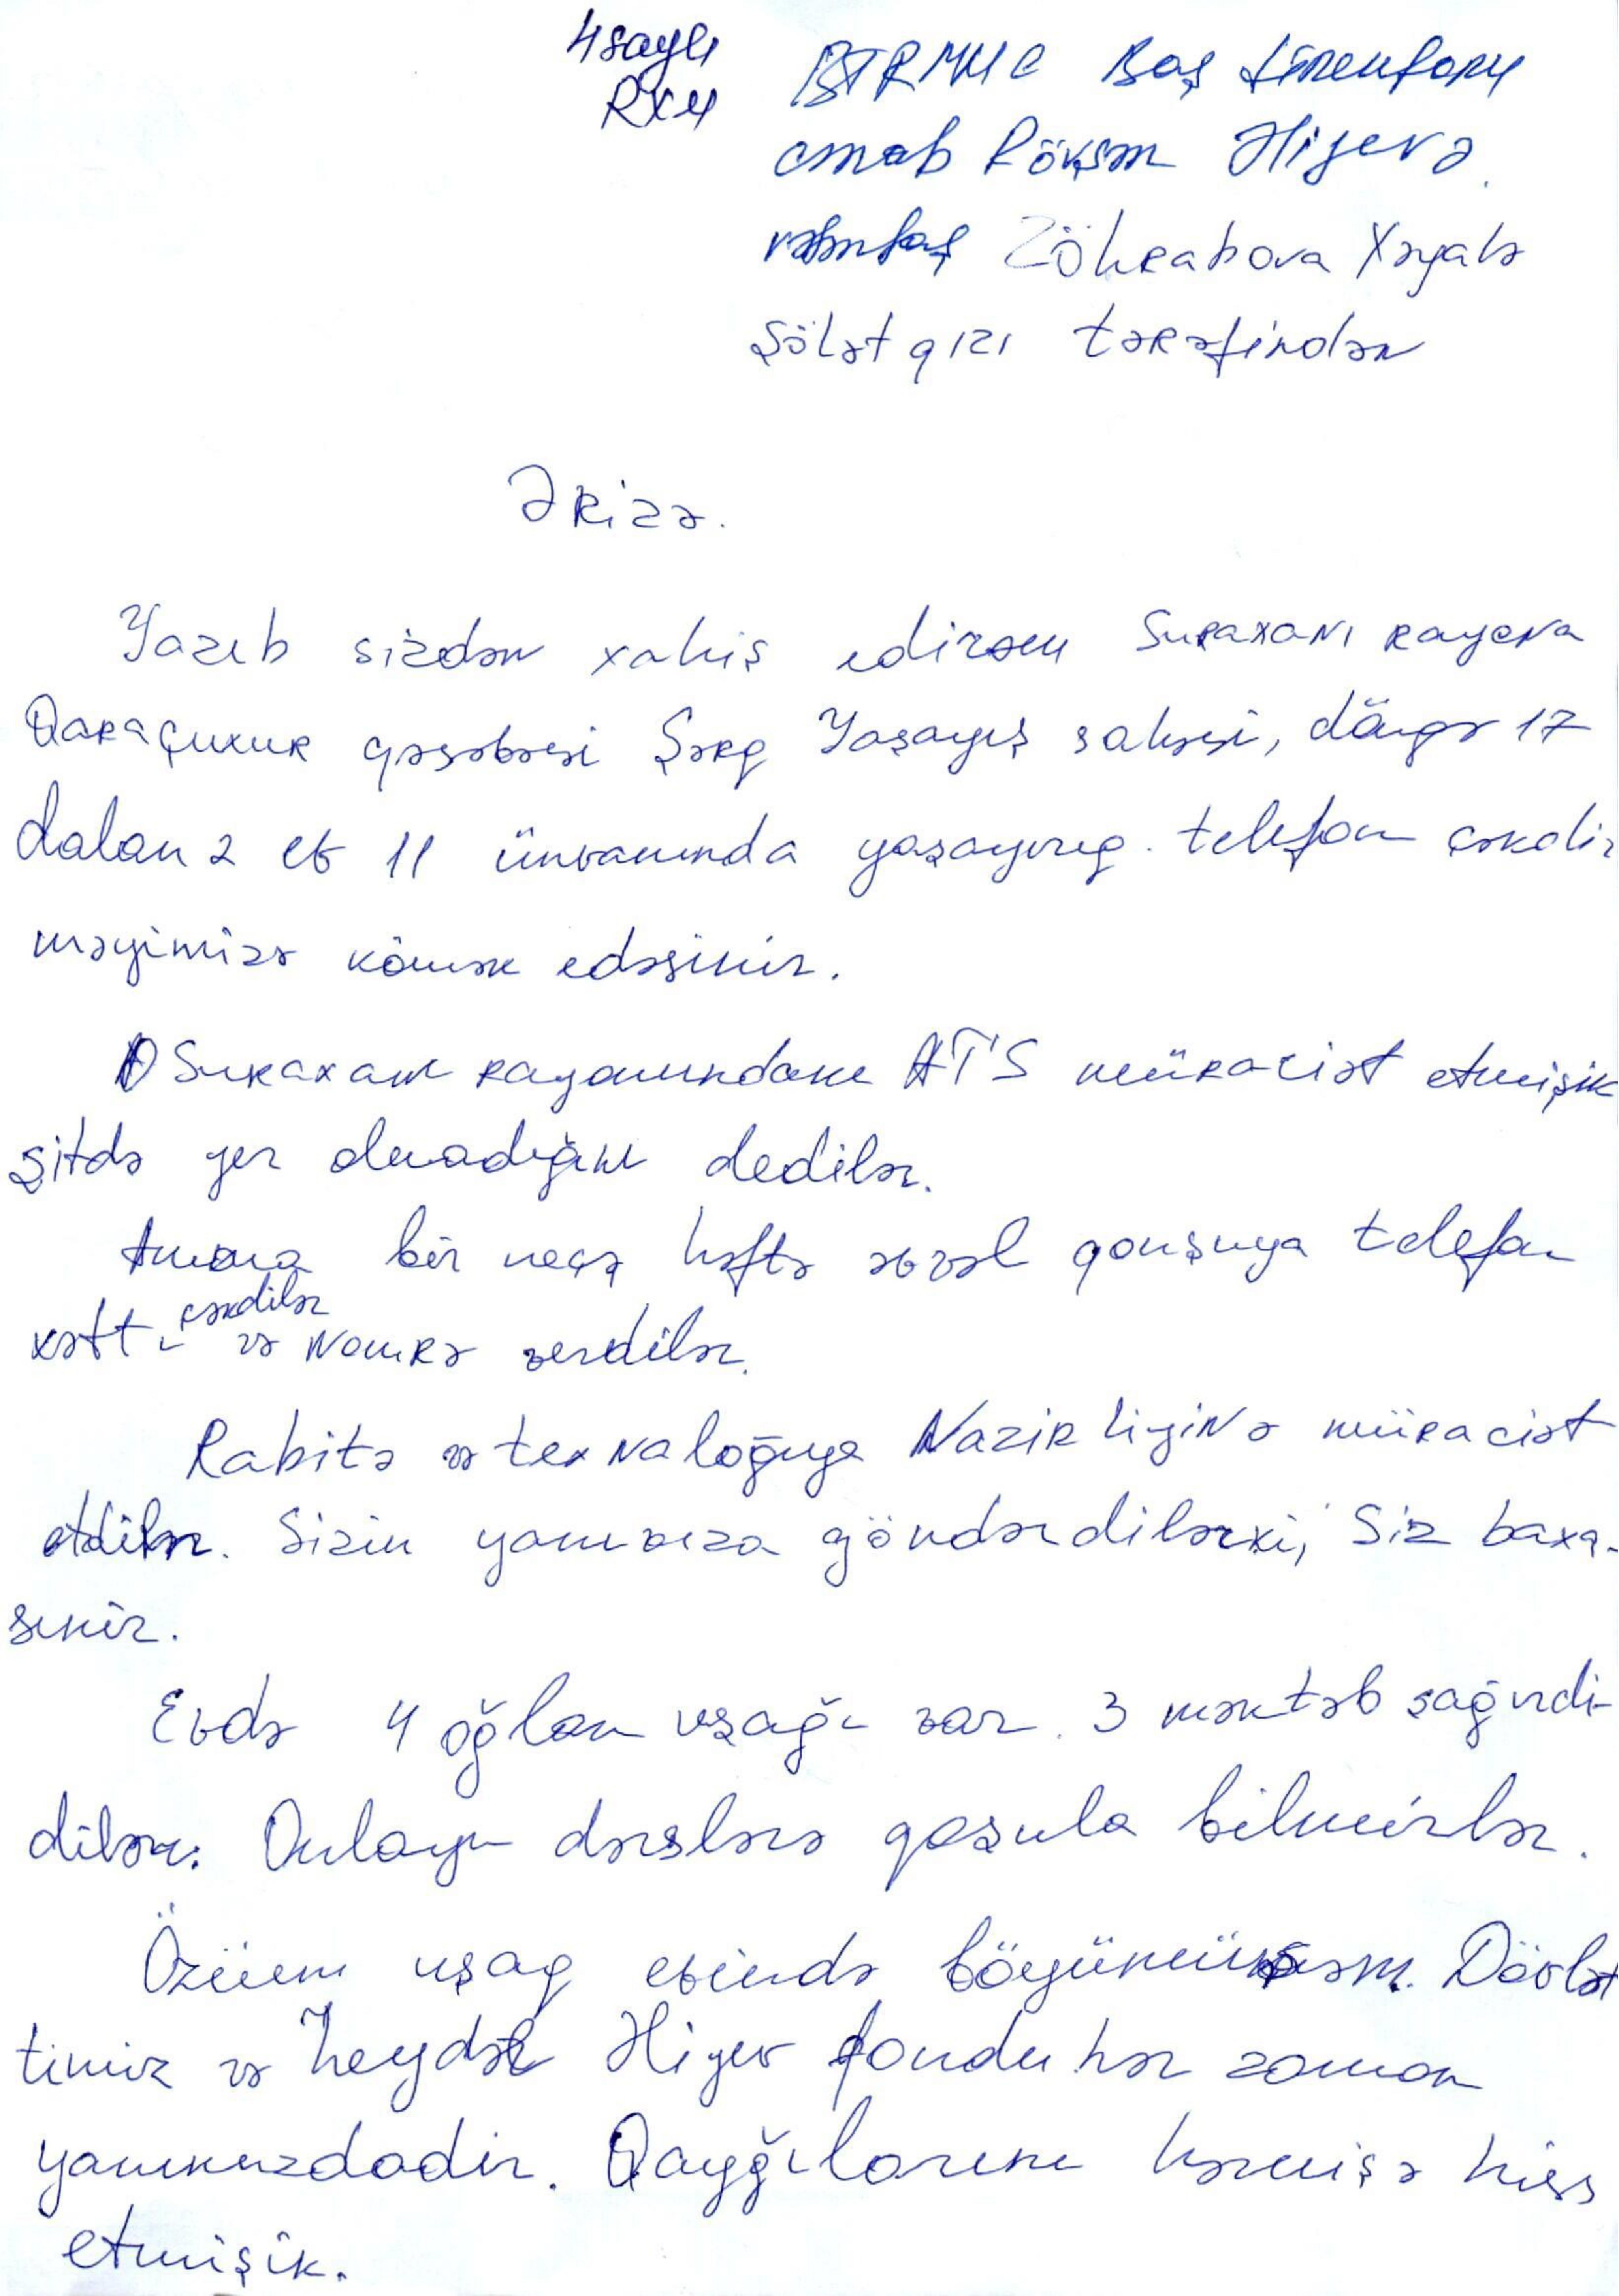 4 saylı
RXM
BTRMMC Baş direktoru
cənab Rövşən Əliyevə
vətəndaş Zöhrabova Xəyalə
Şölət qızı tərəfindən
Ərizə.
Yazıb sizdən xahiş edirəm Suraxanı rayonu
Qaraçuxur qəsəbəsi Şərq Yaşayış sahəsi, döngə 17
dalan 2 ev 11 ünvanında yaşayırıq. telefon çəkdir
məyimizə kömək edəsiniz.
Suraxanı rayonundakı ATS müraciət etmişik
şitdə yer olmadığını dedilər.
Amma bir neçə həftə əvvəl qonşuya telefon
xətti çəkdilər və nomrə verdilər.
Rabitə və texnaloğiya Nazirliyinə müraciət
etdilər. Sizin yanınıza göndərdilərki, Siz baxa-
sınız.
Evdə 4 oğlan uşağı var. 3 məktəb şağırdi-
dilər. Onlayn dərslərə qoşula bilmirlər.
Özüm uşaq evində böyümüşəm. Dövlət
timiz və Heydər Əliyev fondu hər zaman
yanımızdadır. Qayğılarını həmişə hiss
etmişik.